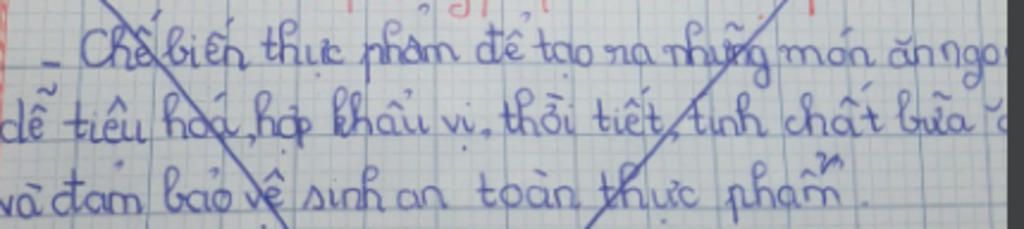 - Chế biến thực phẩm để tạo ra những món ăn ngo
dễ tiêu hoá, hợp khẩu vị, thời tiết, tính chất bữa
và đảm bảo vệ sinh an toàn thực phẩm.